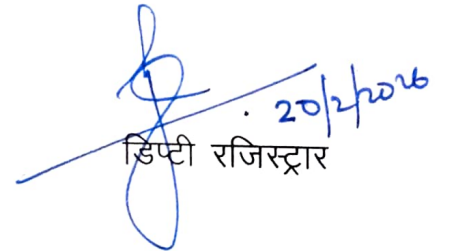 20/2/2026
डिप्टी रजिस्ट्रार